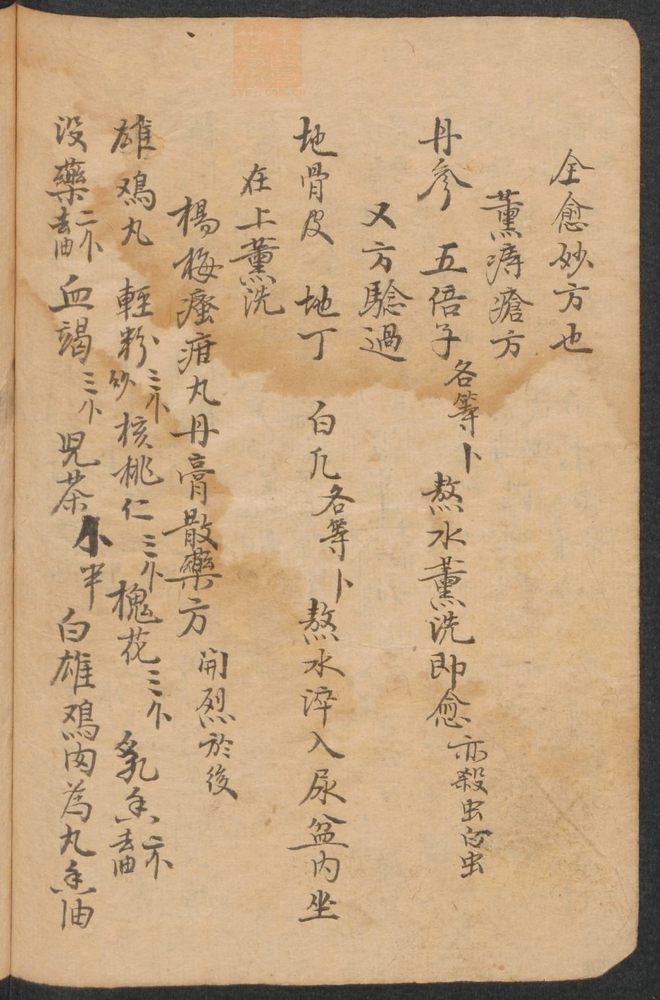 全愈妙方也
薰痔瘡方
丹參 五倍子各等卜熬水薰洗即愈亦殺虫
又方騐過
地骨皮 地丁 白凡各等卜熬水淬入尿盆内坐
在上薰洗
楊梅瘞疳丸丹膏散藥方 開烈於後
雄鳮丸 輕粉三卜炒核桃仁三卜槐花三卜 乳香二卜去油
没藥二卜去油血竭三卜児茶卜半白雄鳮肉為丸香油